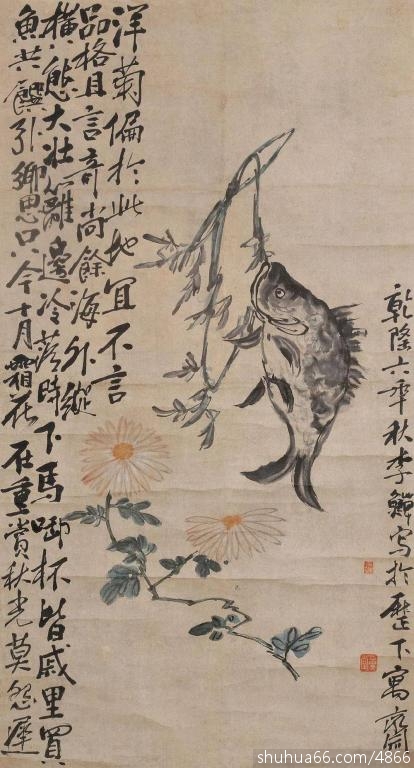 洋菊偏於此地宜不言
品格且言奇尚餘海外縱
橫態大壯籬邊冷落時下馬啣杯皆戚里買
魚共饌引鄉思只今十月霜花在重賞秋光莫怨遲
乾隆六年秋李鱓寫於歷下寓齋
shuhua66.com/4866